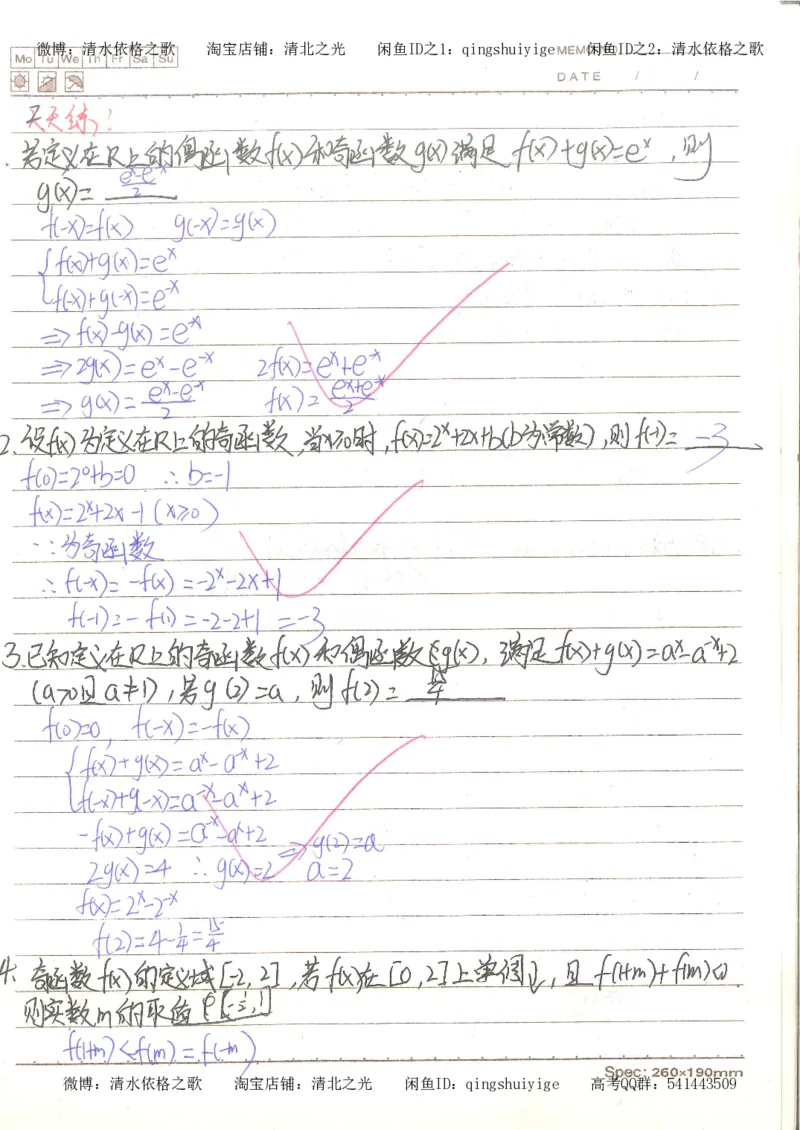 微博：清水依格之歌 淘宝店铺：清北之光 闲鱼ID之1：qingshuiyige 闲鱼ID之2：清水依格之歌
Mo Tu We Th Fr Sa Su
DATE / /
天天练
若定义在R上的偶函数f(x)和奇函数g(x)满足 f(x)+g(x)=e^x ,则
g(x)= (e^x-e^-x)/2
f(-x)=f(x) g(-x)=g(x)
{ f(x)+g(x)=e^x
f(-x)+g(-x)=e^-x
=> f(x)-g(x)=e^-x
=> 2g(x)=e^x-e^-x 2f(x)=e^x+e^-x
=> g(x)=(e^x-e^-x)/2 f(x)=(e^x+e^-x)/2
2.设f(x)为定义在R上的奇函数,当x≥0时,f(x)=2^x+2x+b(b为常数),则f(-1)= -3
f(0)=2^0+b=0 ∴b=-1
f(x)=2^x+2x-1 (x≥0)
∵为奇函数
∴f(-x)=-f(x)=-2^x-2x+1
f(-1)=-f(1)=-2-2+1=-3
3.已知定义在R上的奇函数f(x)和偶函数g(x),满足f(x)+g(x)=a^x-a^-x+2
(a>0且a≠1),若g(2)=a,则f(2)= 15/4
f(0)=0, f(-x)=-f(x)
{ f(x)+g(x)=a^x-a^-x+2
f(-x)+g(-x)=a^-x-a^x+2
-f(x)+g(x)=a^-x-a^x+2
2g(x)=4 ∴g(x)=2 => g(2)=a
a=2
f(x)=2^x-2^-x
f(2)=4-1/4=15/4
4. 奇函数f(x)的定义域[-2,2],若f(x)在[0,2]上单调↓,且f(1+m)+f(m)<0
则实数m的取值
f(1+m)<-f(m)=f(-m)
Spec: 260×190mm
微博：清水依格之歌 淘宝店铺：清北之光 闲鱼ID：qingshuiyige 高考QQ群：541443509